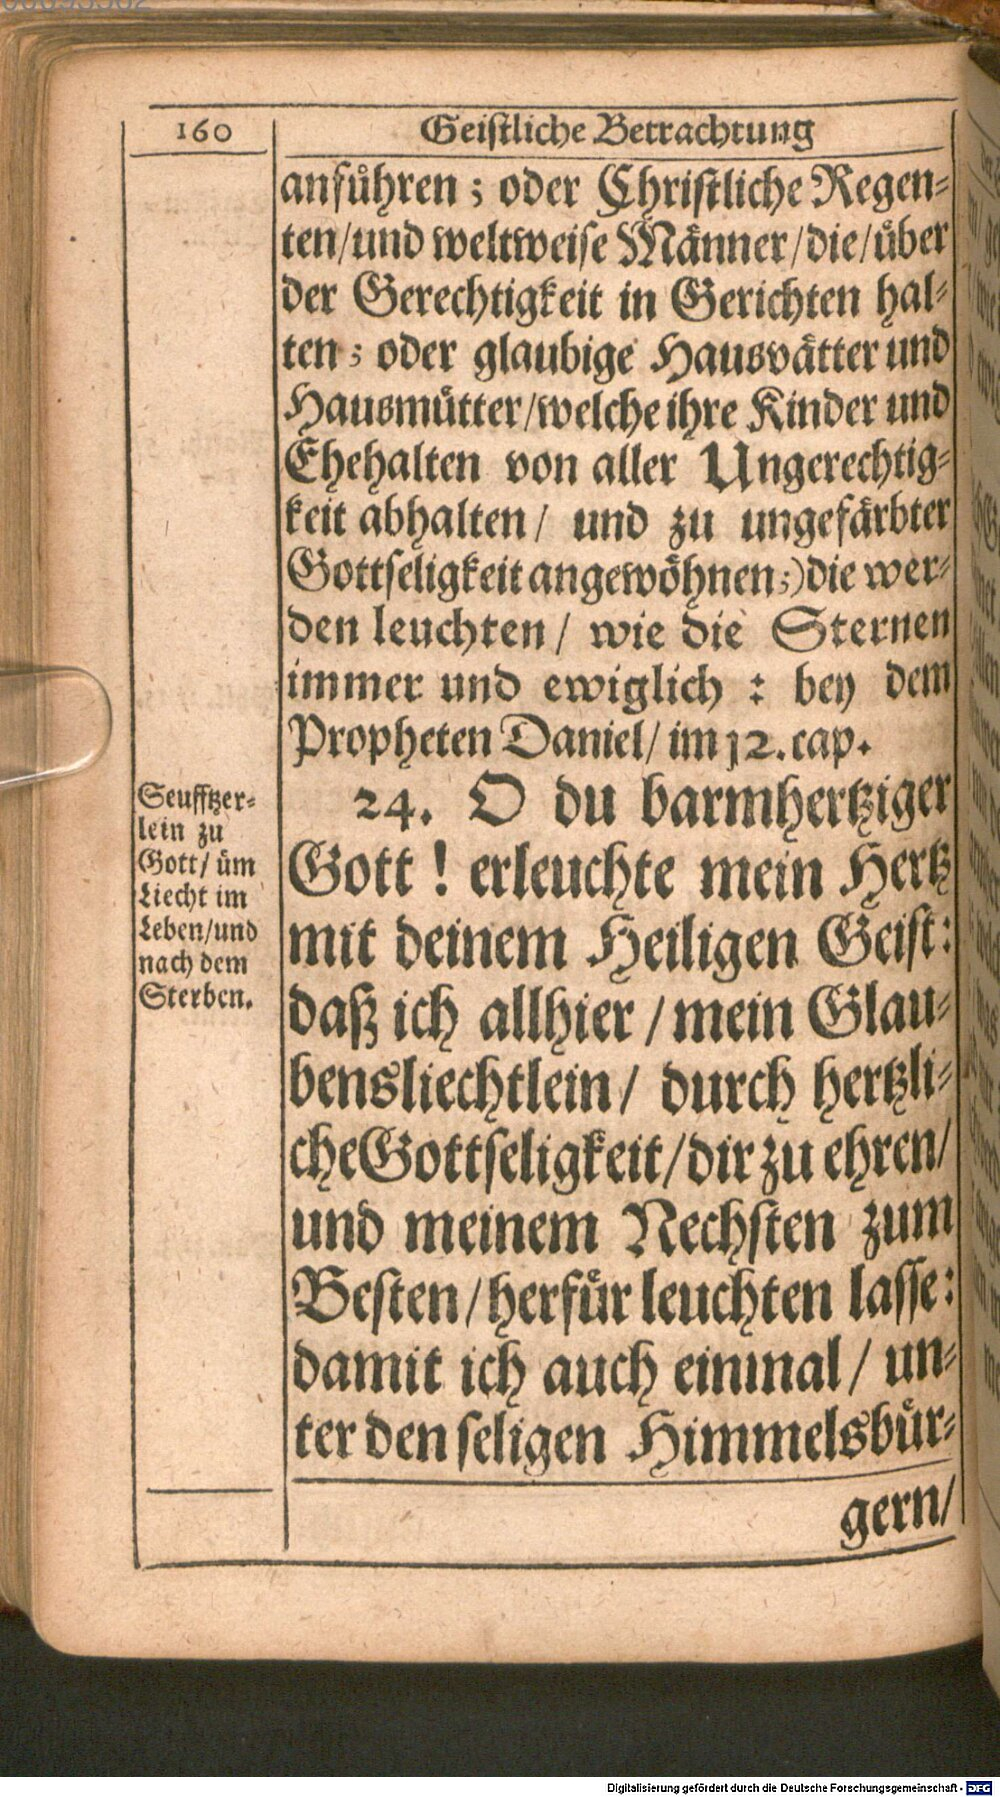 160
Geistliche Betrachtung
anführen; oder Christliche Regen-
ten/und weltweise Männer/die/über
der Gerechtigkeit in Gerichten hal-
ten; oder glaubige Hausvätter und
Hausmütter/welche ihre Kinder und
Ehehalten von aller Ungerechtig-
keit abhalten/ und zu ungefärbter
Gottseligkeit angewöhnen;) die wer-
den leuchten/ wie die Sternen
immer und ewiglich : bey dem
Propheten Daniel/ im 12. cap.
24. O du barmhertziger
Gott! erleuchte mein Hertz
mit deinem Heiligen Geist:
daß ich allhier / mein Glau-
bensliechtlein/ durch hertzli-
che Gottseligkeit/dir zu ehren/
und meinem Nechsten zum
Besten/herfür leuchten lasse:
damit ich auch einmal/ un-
ter den seligen Himmelsbür-
gern/
Seufftzer-
lein zu
Gott/ üm
Liecht im
Leben/und
nach dem
Sterben.
Digitalisierung gefördert durch die Deutsche Forschungsgemeinschaft - DFG